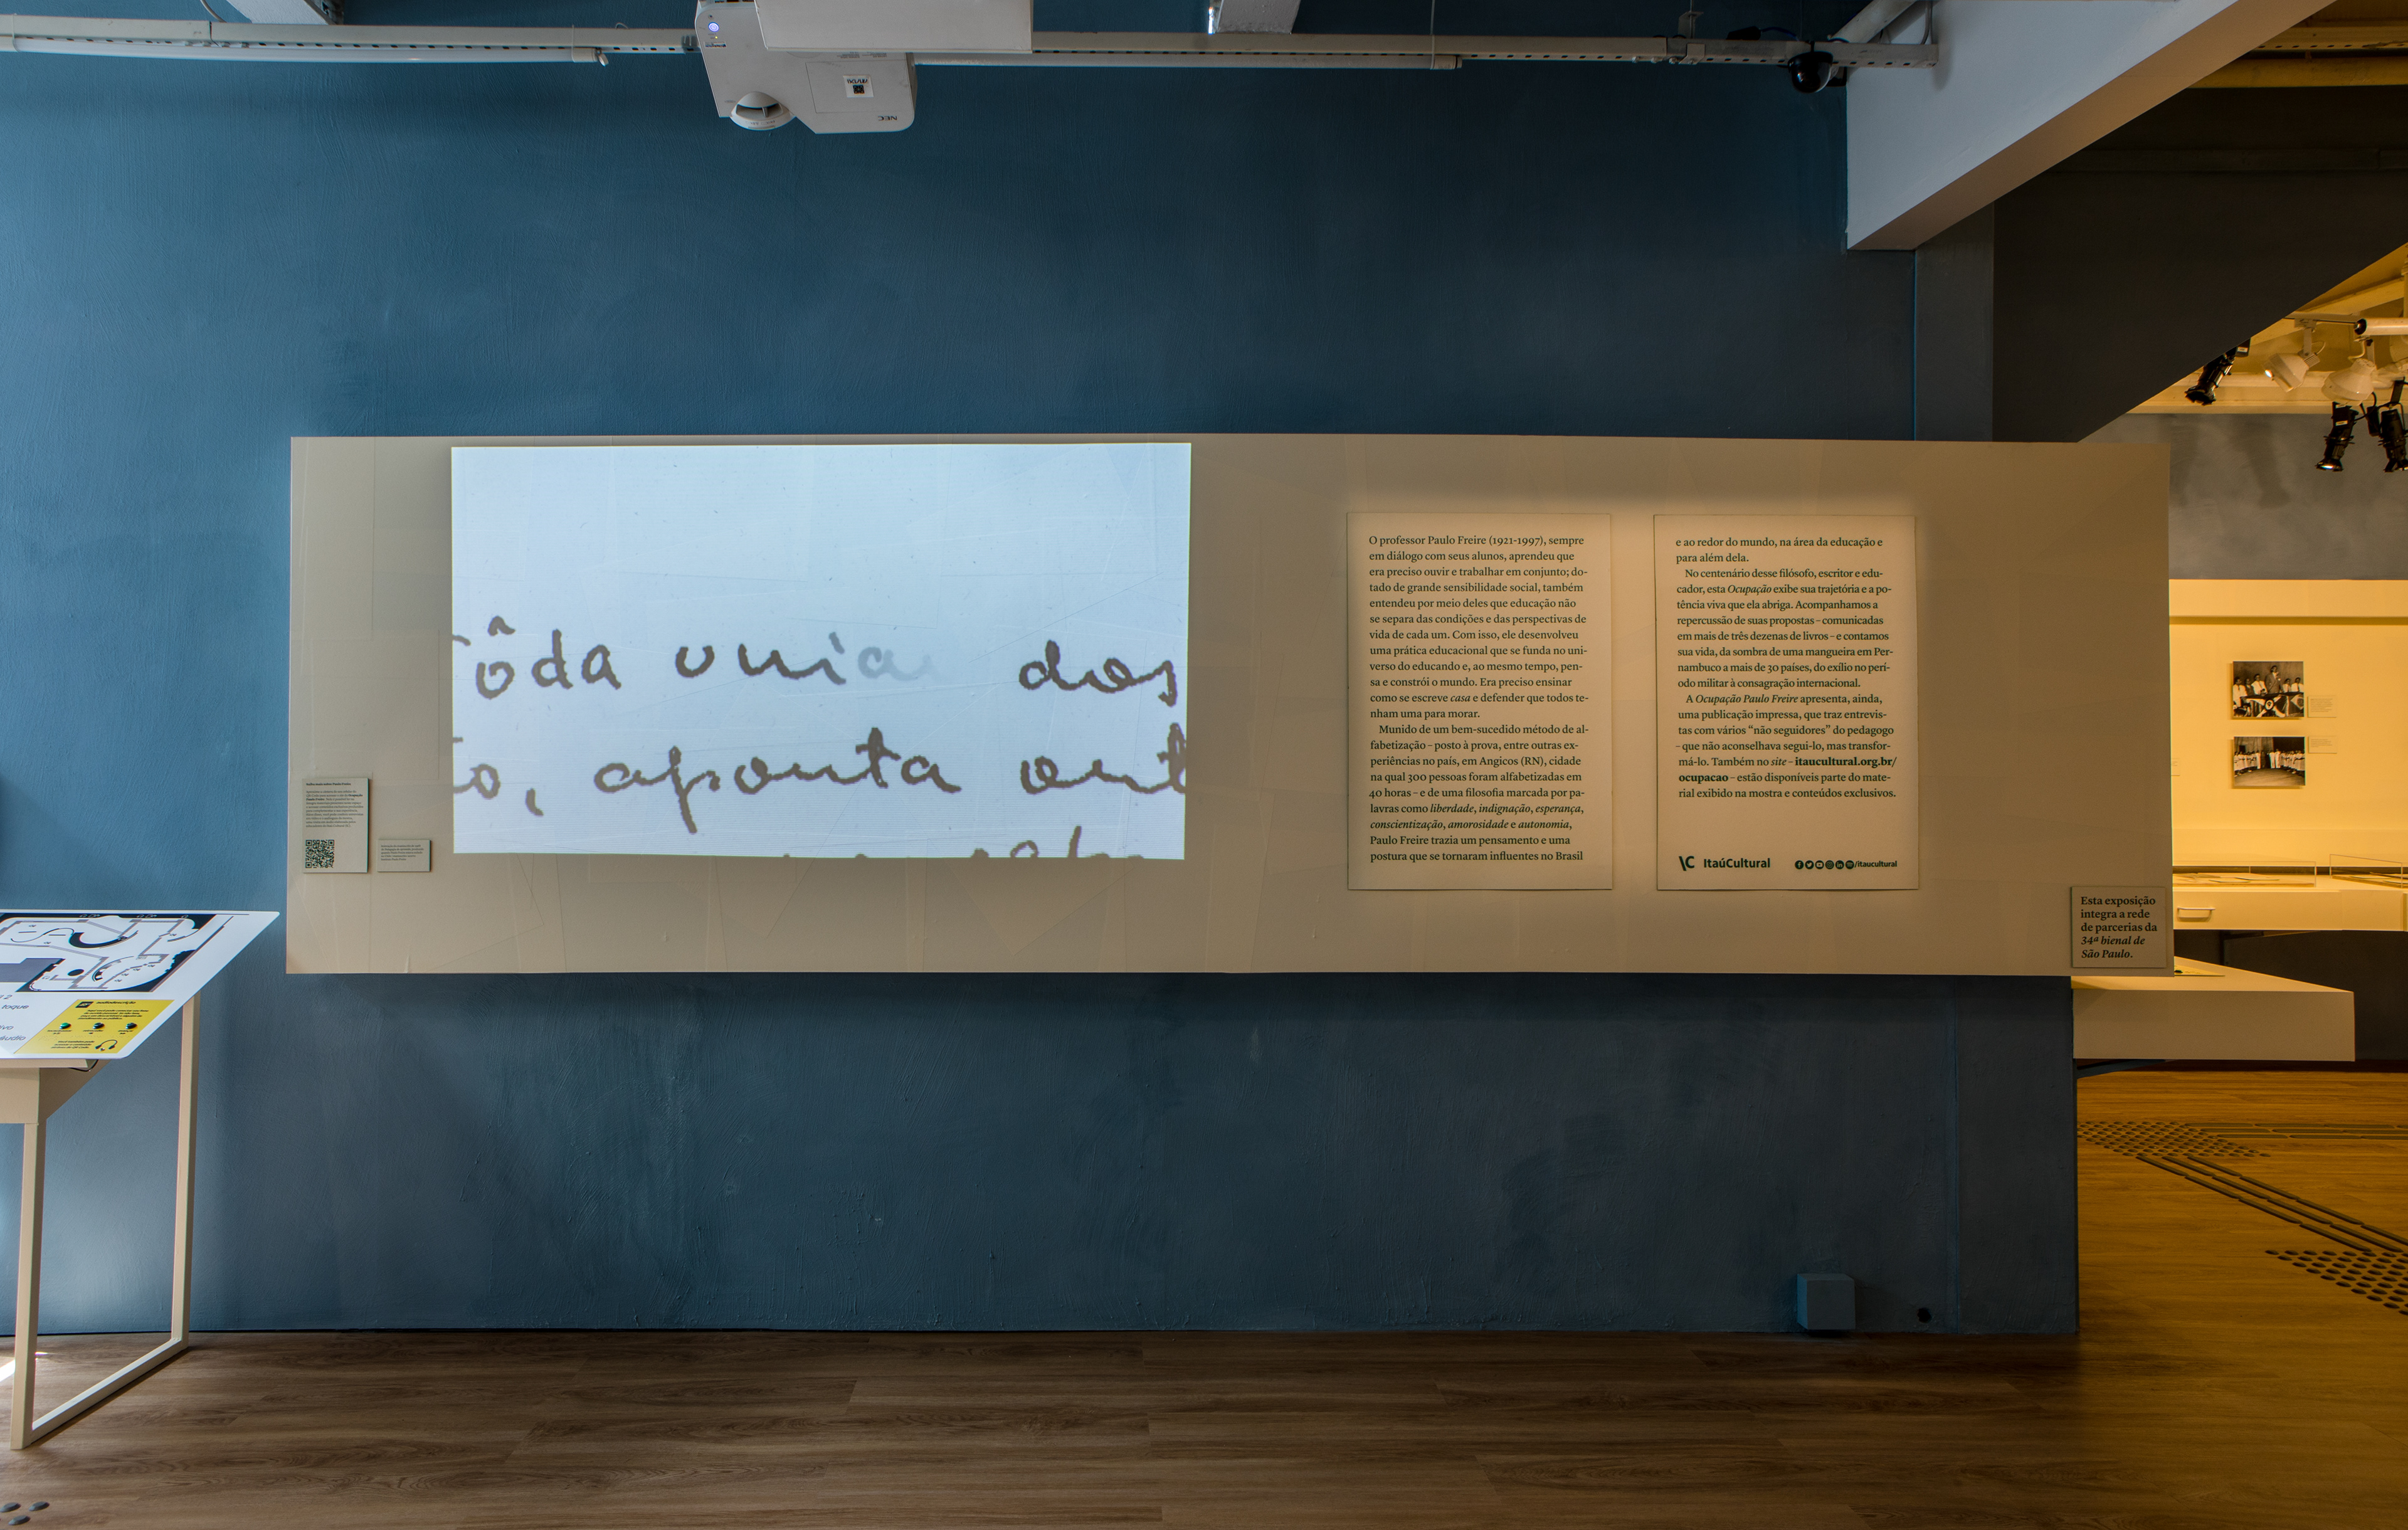 NEC
Tôda unia dos
to, aponta out
O professor Paulo Freire (1921-1997), sempre
em diálogo com seus alunos, aprendeu que
era preciso ouvir e trabalhar em conjunto; do-
tado de grande sensibilidade social, também
entendeu por meio deles que educação não
se separa das condições e das perspectivas de
vida de cada um. Com isso, ele desenvolveu
uma prática educacional que se funda no uni-
verso do educando e, ao mesmo tempo, pen-
sa e constrói o mundo. Era preciso ensinar
como se escreve casa e defender que todos te-
nham uma para morar.
Munido de um bem-sucedido método de al-
fabetização – posto à prova, entre outras ex-
periências no país, em Angicos (RN), cidade
na qual 300 pessoas foram alfabetizadas em
40 horas – e de uma filosofia marcada por pa-
lavras como liberdade, indignação, esperança,
conscientização, amorosidade e autonomia,
Paulo Freire trazia um pensamento e uma
postura que se tornaram influentes no Brasil
e ao redor do mundo, na área da educação e
para além dela.
No centenário desse filósofo, escritor e edu-
cador, esta Ocupação exibe sua trajetória e a po-
tência viva que ela abriga. Acompanhamos a
repercussão de suas propostas – comunicadas
em mais de três dezenas de livros – e contamos
sua vida, da sombra de uma mangueira em Per-
nambuco a mais de 30 países, do exílio no perí-
odo militar à consagração internacional.
A Ocupação Paulo Freire apresenta, ainda,
uma publicação impressa, que traz entrevis-
tas com vários “não seguidores” do pedagogo
– que não aconselhava segui-lo, mas transfor-
má-lo. Também no site – itaucultural.org.br/
ocupacao – estão disponíveis parte do mate-
rial exibido na mostra e conteúdos exclusivos.
ItaúCultural
/itaucultural
Esta exposição
integra a rede
de parcerias da
34ª bienal de
São Paulo.
toque
áudio